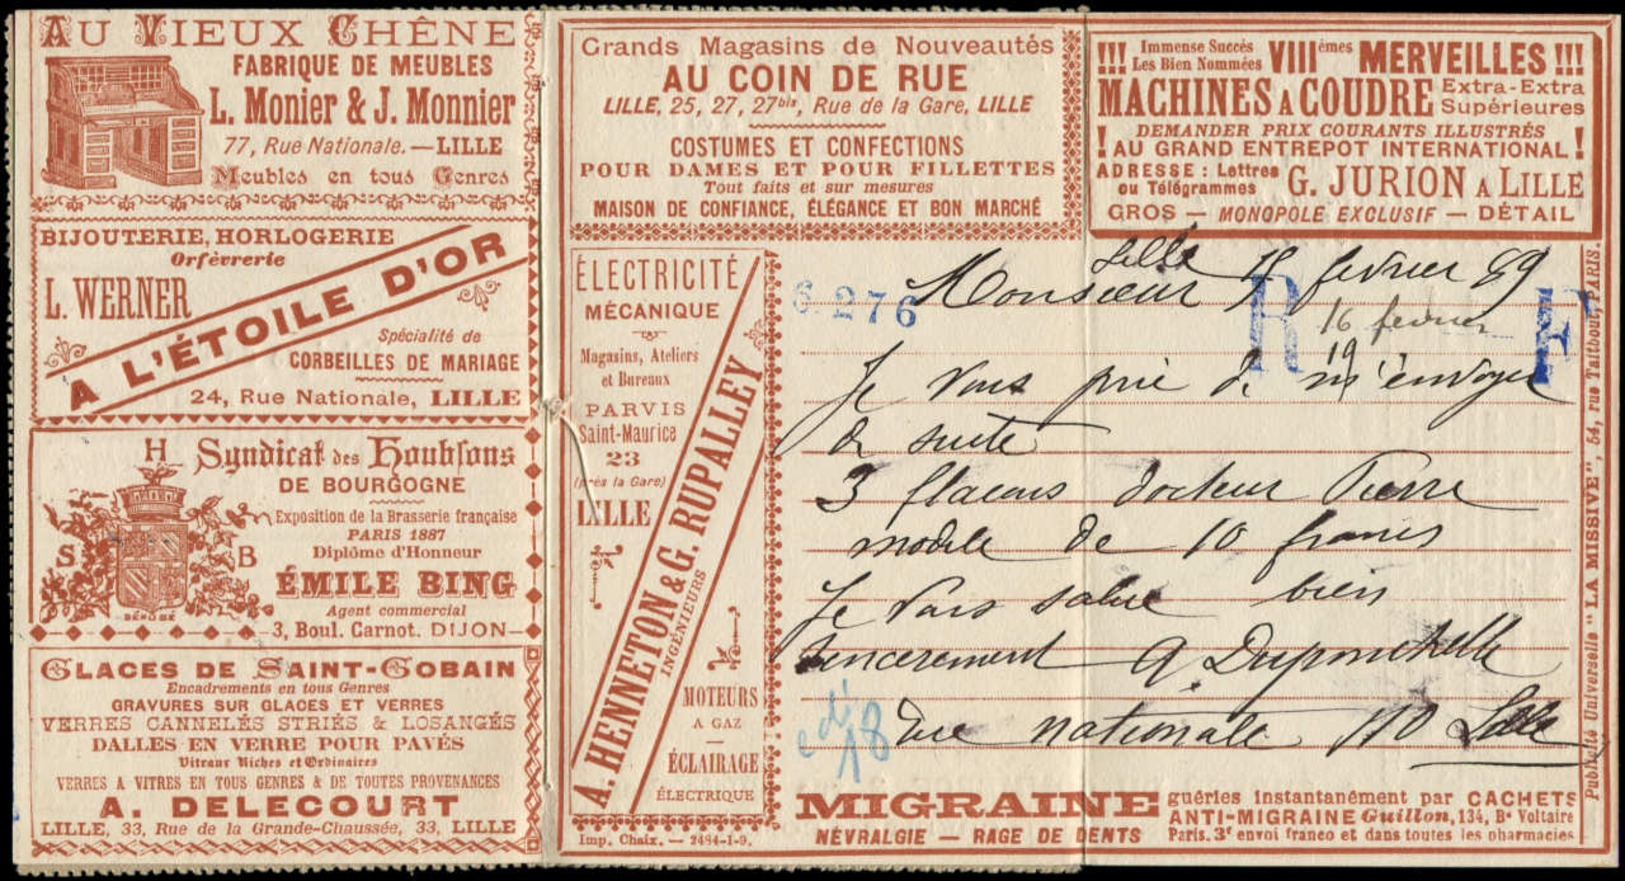 AU VIEUX CHÊNE
FABRIQUE DE MEUBLES
L. Monier & J. Monnier
77, Rue Nationale. — LILLE
Meubles en tous Genres
BIJOUTERIE, HORLOGERIE
Orfèvrerie
L. WERNER
A L'ÉTOILE D'OR
Spécialité de
CORBEILLES DE MARIAGE
24, Rue Nationale, LILLE
H
S
B
DÉPOSÉ
Syndicat des Houblons
DE BOURGOGNE
Exposition de la Brasserie française
PARIS 1887
Diplôme d'Honneur
ÉMILE BING
Agent commercial
3, Boul. Carnot. DIJON
GLACES DE SAINT-GOBAIN
Encadrements en tous Genres
GRAVURES SUR GLACES ET VERRES
VERRES CANNELÉS STRIÉS & LOSANGÉS
DALLES EN VERRE POUR PAVÉS
Vitraux Riches et Ordinaires
VERRES A VITRES EN TOUS GENRES & DE TOUTES PROVENANCES
A. DELECOURT
LILLE, 33, Rue de la Grande-Chaussée, 33, LILLE
Grands Magasins de Nouveautés
AU COIN DE RUE
LILLE, 25, 27, 27bis, Rue de la Gare, LILLE
COSTUMES ET CONFECTIONS
POUR DAMES ET POUR FILLETTES
Tout faits et sur mesures
MAISON DE CONFIANCE, ÉLÉGANCE ET BON MARCHÉ
ÉLECTRICITÉ
MÉCANIQUE
Magasins, Ateliers
et Bureaux
PARVIS
Saint-Maurice
23
(près la Gare)
LILLE
A. HENNETON & G. RUPALLEY
INGÉNIEURS
MOTEURS
A GAZ
ÉCLAIRAGE
ÉLECTRIQUE
Imp. Chaix. — 2484-1-9.
!!! Immense Succès VIIIèmes MERVEILLES !!!
Les Bien Nommées
MACHINES A COUDRE Extra-Extra
Supérieures
! DEMANDER PRIX COURANTS ILLUSTRÉS !
AU GRAND ENTREPOT INTERNATIONAL
ADRESSE : Lettres
ou Télégrammes G. JURION A LILLE
GROS — MONOPOLE EXCLUSIF — DÉTAIL
Lille 15 fevrier 89
6276
Monsieur
R
F
16 fevrier
19
Je vous prie de m'envoyer
de suite
3 flacons docteur Pierre
modele de 10 francs
Je vous salue bien
sencerement A. Duponchelle
18
Rue nationale 110 Lille
MIGRAINE
NÉVRALGIE — RAGE DE DENTS
guéries instantanément par CACHETS
ANTI-MIGRAINE Guillon, 134, Bd Voltaire
Paris. 3f envoi franco et dans toutes les pharmacies
Publicité Universelle "LA MISSIVE", 54, rue Taitbout, PARIS.